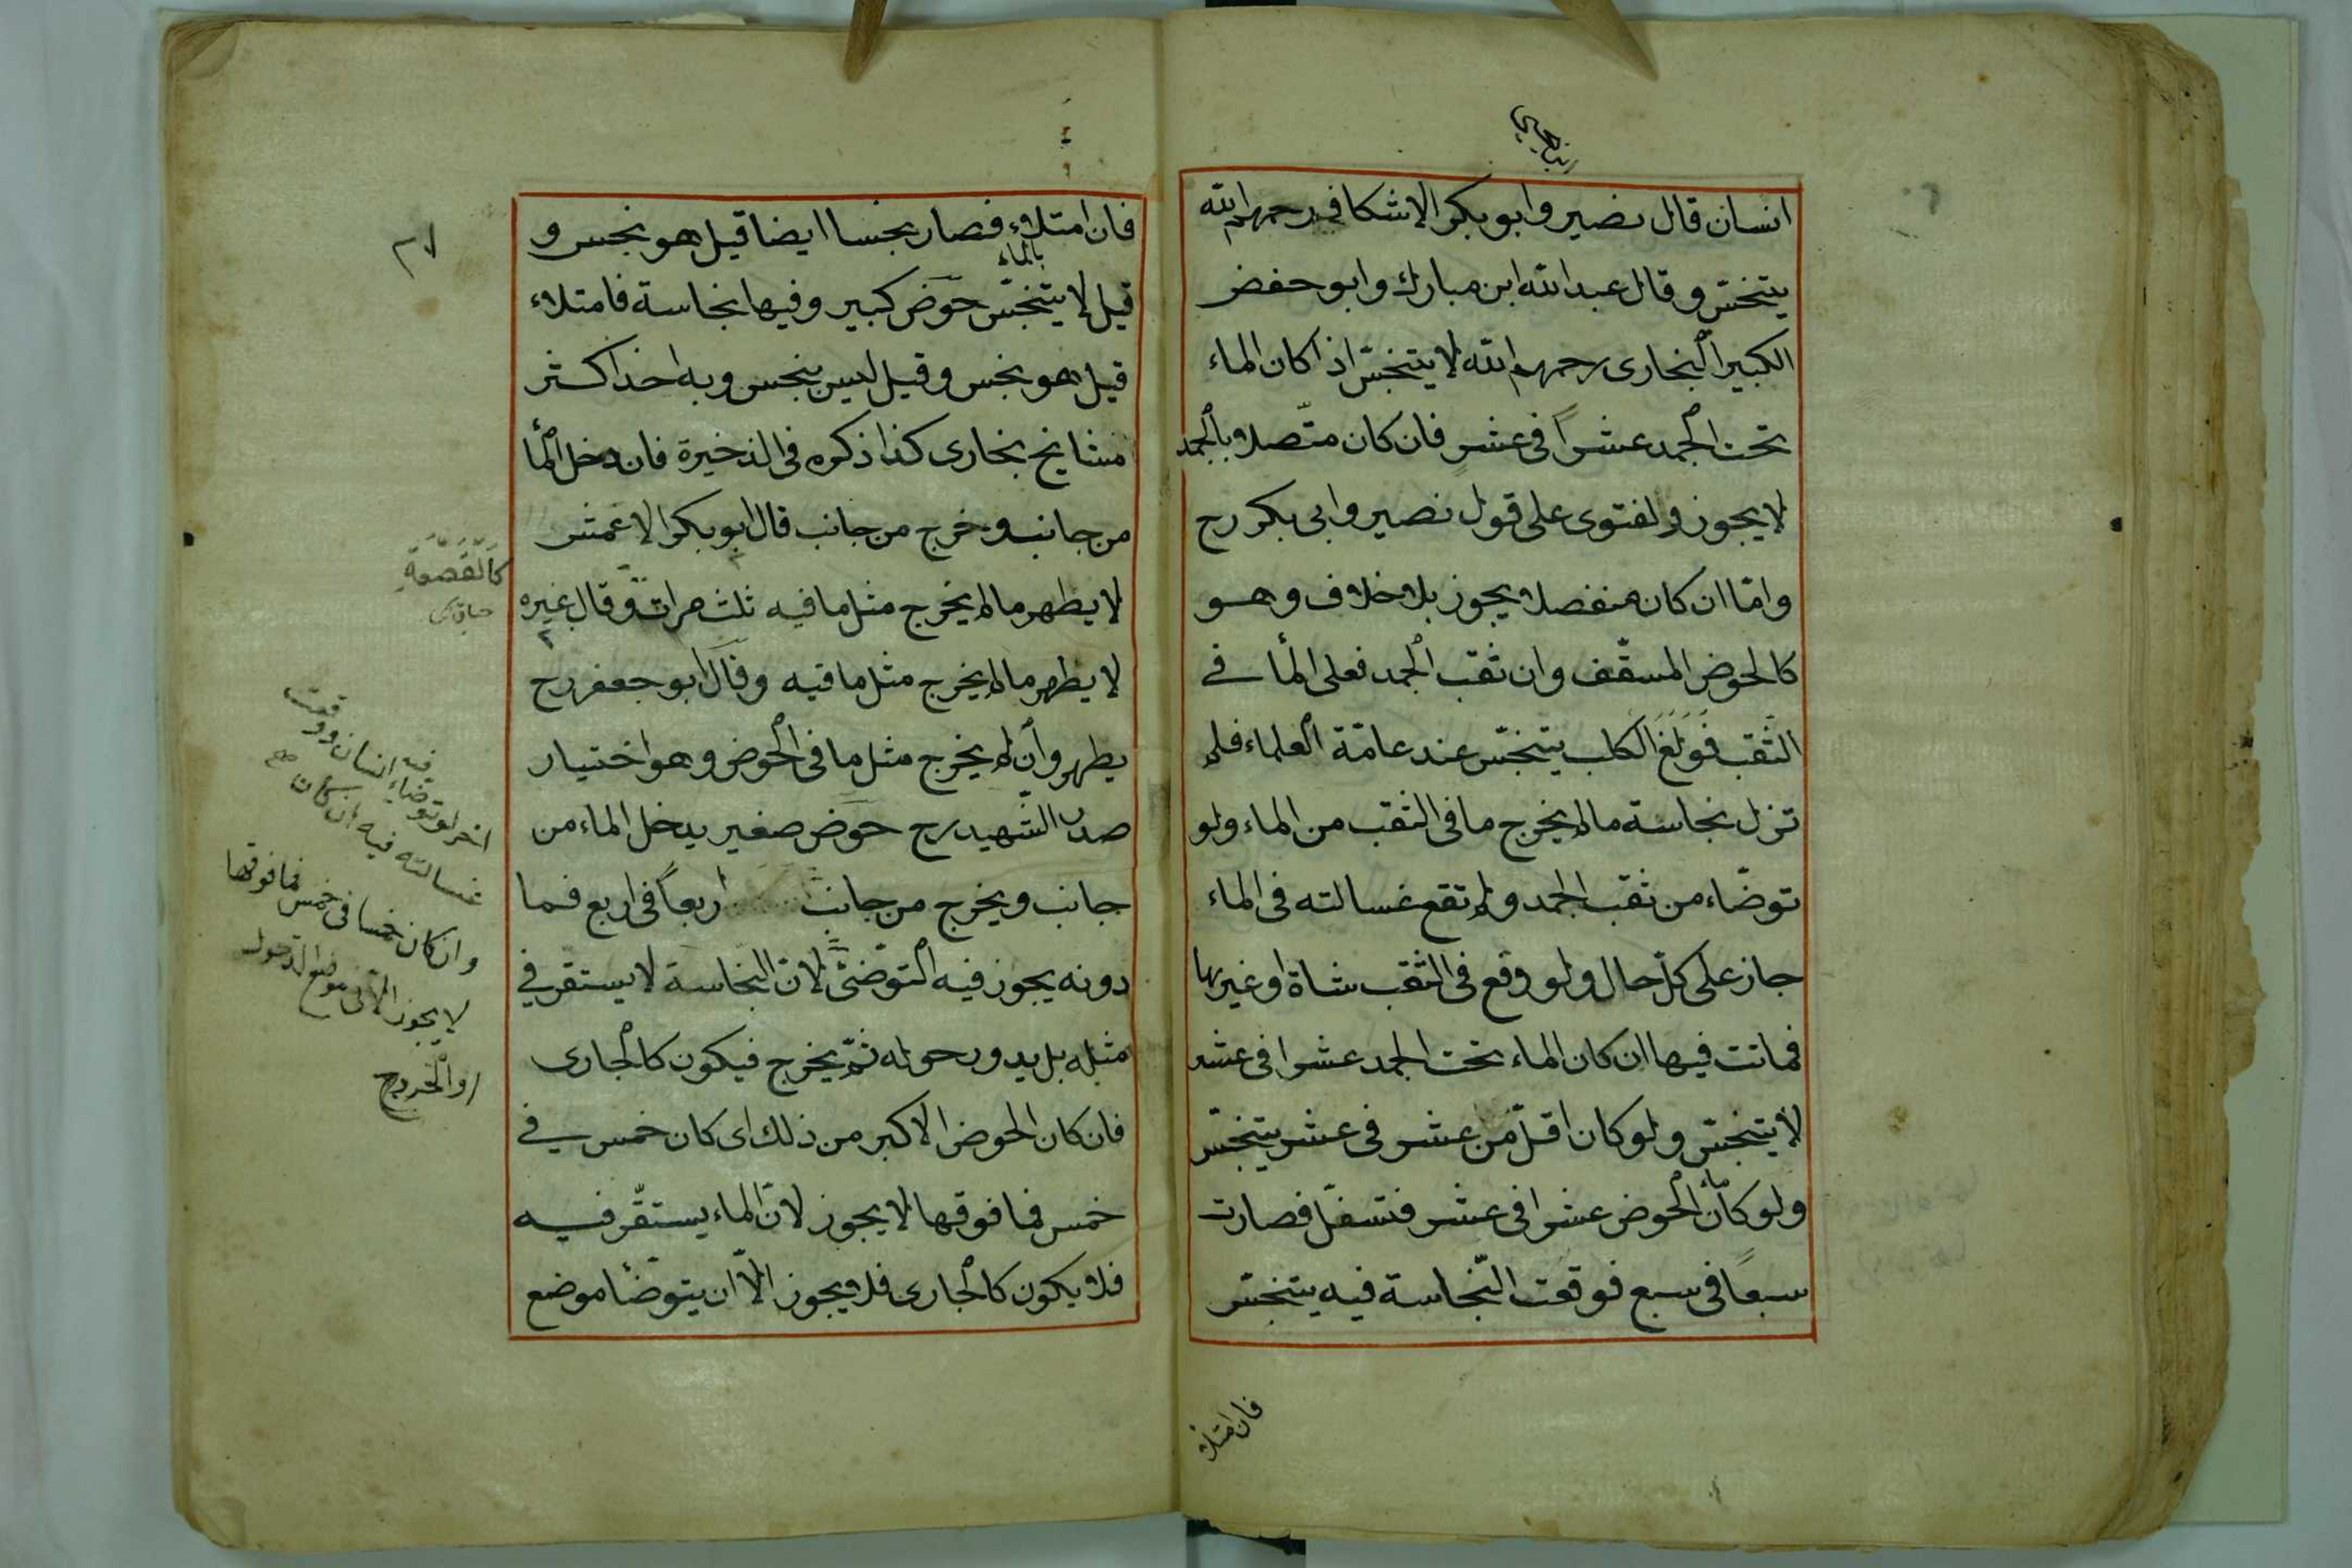 انسان قال نصير وابو بكر الاشكافى رحمهم الله
يتنجّس وقال عبد الله ابن مبارك وابو حفض
الكبير البخارى رحمهم الله لا يتنجّس اذا كان الماء
تحت الجمد عشراً فى عشر فان كان متّصلا بالجمد
لا يجوز ولفتوى على قول نصير وابى بكر رح
وامّا ان كان منفصلا يجوز بلا خلاف وهو
كالحوض المسقّف وان ثقب الجمد فعلى المأ فى
الثقب فَوَلَغَ الكلب يتنجّس عند عامّة العلماء فلم
تزل نجاسة مالم يخرج ما فى الثقب من الماء ولو
توضّاء من ثقب الجمد ولم تقع غسالته فى الماء
جاز على كلّ حال ولو وقع فى الثقب شاة او غيرها
فماتت فيها ان كان الماء تحت الجمد عشرا فى عشر
لا يتنجّس ولو كان اقلّ من عشر فى عشر يتنجّس
ولو كان ماء الحوض عشرا فى عشر فتسفّل فصارت
سبعاً فى سبع فوقعت النّجاسة فيه يتنجّس
فان امتلاء
٢٧
فان امتلاء فصار نجسا ايضا قيل هو نجس و
بالماء
قيل لا يتنجّس حوض كبير وفيها نجاسة فامتلاء
قيل هو نجس وقيل ليس بنجس وبه اخذ اكثر
مشايخ بخارى كذا ذكره فى الذخيرة فان دخل المأ
من جانب وخرج من جانب قال ابو بكر الاعمش
لا يطهر مالم يخرج مثل ما فيه ثلث مرات وقال غيره
لا يطهر مالم يخرج مثل ما فيه وقال ابو جعفر رح
يطهر وان لم يخرج مثل ما فى الحوض وهو اختيار
صدر الشّهيد رح حوض صغير يدخل الماء من
جانب ويخرج من جانب اربعاً فى اربع فما
دونه يجوز فيه التوضّئ لانّ النّجاسة لا يستقر فى
مثله بل يدور حوله ثمّ يخرج فيكون كالجارى
فان كان الحوض الاكبر من ذلك اى كان خمس فى
خمس فما فوقها لا يجوز لانّ الماء يستقّر فيه
فلا يكون كالجارى فلا يجوز الاّ ان يتوضّأ موضع
كالقصعة
اخر لو توضاء فيه انسان ووقعت
غسالته فيه ان كان
وان كان خمسا فى خمس فما فوقها
لا يجوز الا فى موضع الدخول
او الخروج